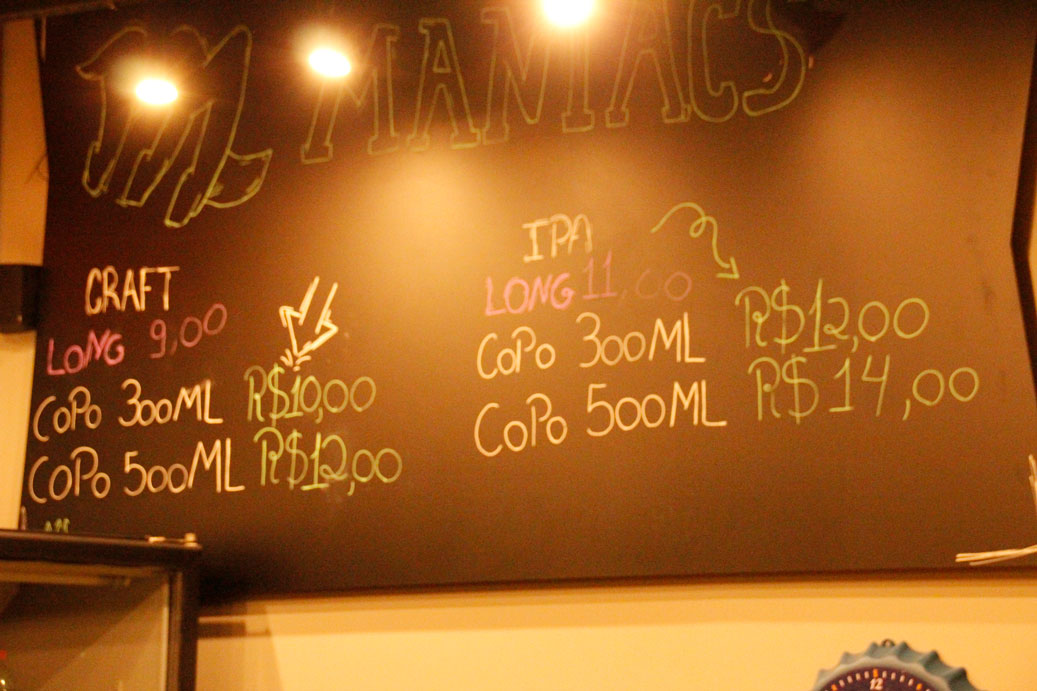 M MANIACS
CRAFT
LONG 9,00
COPO 300ML R$10,00
COPO 500ML R$12,00
IPA
LONG 11,00
COPO 300ML R$12,00
COPO 500ML R$14,00
12